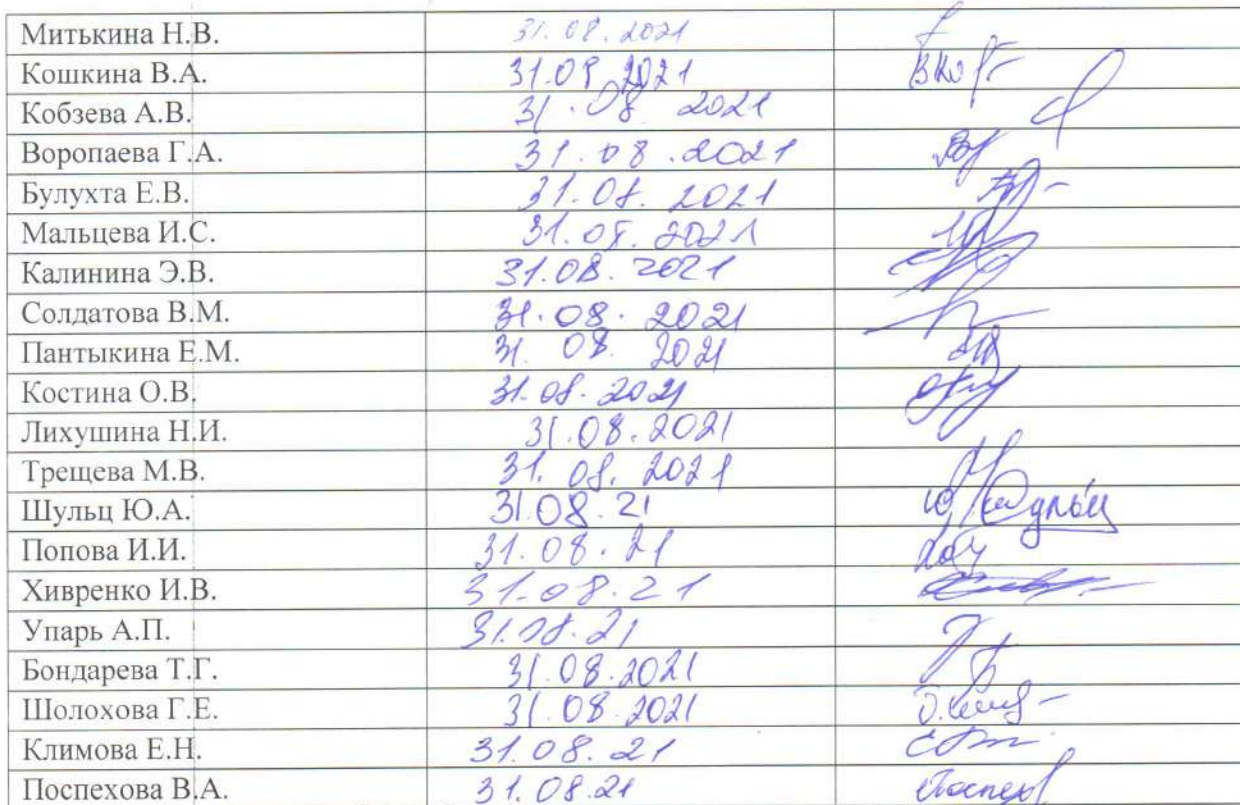 Митькина Н.В. 31.08.2021
Кошкина В.А. 31.08 2021
Кобзева А.В. 31.08 2021
Воропаева Г.А. 31.08.2021
Булухта Е.В. 31.08.2021
Мальцева И.С. 31.08.2021
Калинина Э.В. 31.08.2021
Солдатова В.М. 31.08.2021
Пантыкина Е.М. 31.08.2021
Костина О.В. 31.08.2021
Лихушина Н.И. 31.08.2021
Трещева М.В. 31.08.2021
Шульц Ю.А. 31.08.21
Попова И.И. 31.08.21
Хивренко И.В. 31.08.21
Упарь А.П. 31.08.21
Бондарева Т.Г. 31.08.2021
Шолохова Г.Е. 31.08.2021
Климова Е.Н. 31.08.21
Поспехова В.А. 31.08.21